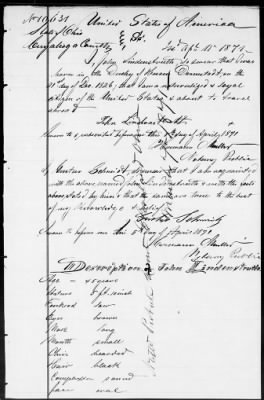 No 10,631 United States of America
State of Ohio
Cuyahoga County } ss. Apl. 11th 1871
I, John Lindenstruth, swear that I was
born in the Duchy of Hessen Darmstadt, on the
31st day of Dec. 1826, that I am a naturalized & loyal
citizen of the United States & about to travel
abroad
John Lindenstruth
Sworn to & subscribed before me this day of April, 1871
Hermann Müller
Notary Public
I, Gustav Schmidt, swear that I am acquainted
with the above named John Lindenstruth & with the facts
above stated by him & that the same are true to the best
of my knowledge & belief
Gustav Schmidt
Sworn to before me this day of April 1871
Hermann Müller
Notary Public
Description of John Lindenstruth
Age — 45 years
Stature 5 ft. inch
Forehead low
Eyes brown
Nose long
Mouth small
Chin bearded
Hair black
Complexion sound
Face oval